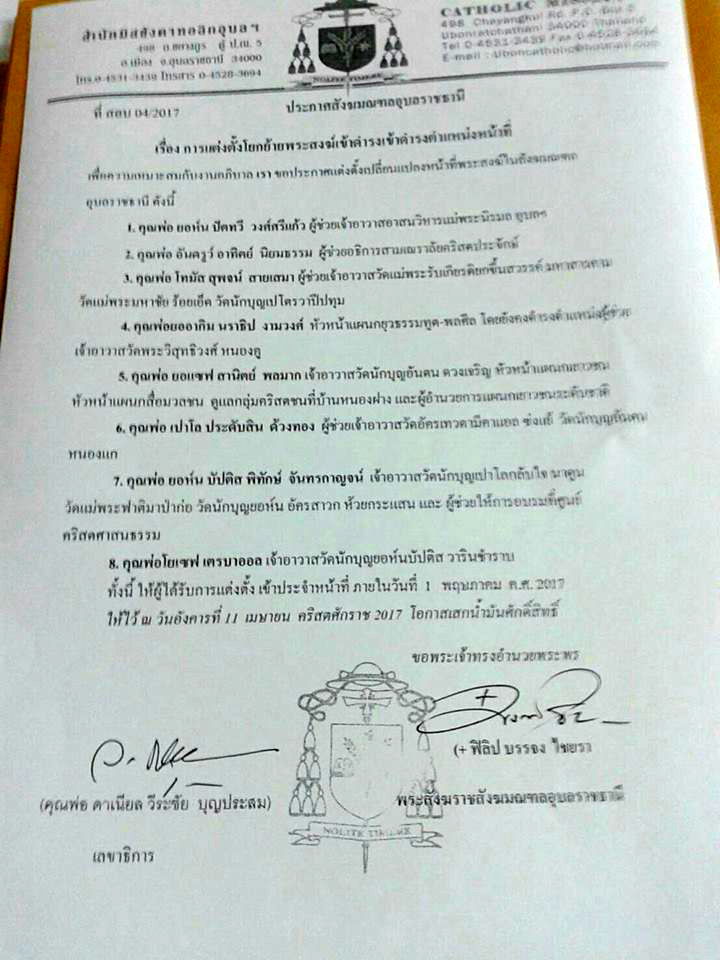 สำนักมิสซังคาทอลิกอุบลฯ
498 ถ.ชยางกูร ตู้ ปณ. 5
อ.เมือง จ.อุบลราชธานี 34000
โทร.0-4531-3439 โทรสาร 0-4528-3694
CATHOLIC
498 Chayangkul Rd. P.O. Box 5
Ubonratchathani 34000 Thailand
Tel 0-4531-3439 Fax 0-4528-3694
E-mail : Uboncatholic@hotmail.com
NOLITE TIMERE
ที่ สอบ 04/2017
ประกาศสังฆมณฑลอุบลราชธานี
เรื่อง การแต่งตั้งโยกย้ายพระสงฆ์เข้าดำรงเข้าดำรงตำแหน่งหน้าที่
เพื่อความเหมาะสมกับงานอภิบาล เรา ขอประกาศแต่งตั้งเปลี่ยนแปลงหน้าที่พระสงฆ์ในสังฆมณฑล
อุบลราชธานี ดังนี้
1. คุณพ่อ ยอห์น ปัตทวี วงศ์ศรีแก้ว ผู้ช่วยเจ้าอาวาสอาสนวิหารแม่พระนิรมล อุบลฯ
2. คุณพ่อ อันดรูว์ อาทิตย์ นิยมธรรม ผู้ช่วยอธิการสามเณราลัยคริสตประจักษ์
3. คุณพ่อ โทมัส สุพจน์ สายเสมา ผู้ช่วยเจ้าอาวาสวัดแม่พระรับเกียรติยกขึ้นสวรรค์ มหาสารคาม
วัดแม่พระมหาชัย ร้อยเอ็ด วัดนักบุญเปโตรวาปีปทุม
4. คุณพ่อยออากิม นราธิป งามวงศ์ หัวหน้าแผนกยุวธรรมทูต-พลศีล โดยยังคงดำรงตำแหน่งผู้ช่วย
เจ้าอาวาสวัดพระวิสุทธิวงศ์ หนองคู
5. คุณพ่อ ยอแซฟ สานิตย์ พลมาก เจ้าอาวาสวัดนักบุญอันตน ดวงเจริญ หัวหน้าแผนกเยาวชน
หัวหน้าแผนกสื่อมวลชน ดูแลกลุ่มคริสตชนที่บ้านหนองฝาง และผู้อำนวยการแผนกเยาวชนระดับชาติ
6. คุณพ่อ เปาโล ประดับสิน ด้วงทอง ผู้ช่วยเจ้าอาวาสวัดอัครเทวดามีคาแอล ซ่งแย้ วัดนักบุญอันตน
หนองแก
7. คุณพ่อ ยอห์น บัปติส พิทักษ์ จันทรกาญจน์ เจ้าอาวาสวัดนักบุญเปาโลกลับใจ นาดูน
วัดแม่พระฟาติมาป่าก่อ วัดนักบุญยอห์น อัครสาวก ห้วยกระแสน และ ผู้ช่วยให้การอบรมที่ศูนย์
คริสตศาสนธรรม
8. คุณพ่อโยเซฟ เตรบาออล เจ้าอาวาสวัดนักบุญยอห์นบัปติส วารินชำราบ
ทั้งนี้ ให้ผู้ได้รับการแต่งตั้ง เข้าประจำหน้าที่ ภายในวันที่ 1 พฤษภาคม ค.ศ. 2017
ให้ไว้ ณ วันอังคารที่ 11 เมษายน คริสตศักราช 2017 โอกาสเสกน้ำมันศักดิ์สิทธิ์
ขอพระเจ้าทรงอำนวยพระพร
(+ ฟิลิป บรรจง ไชยรา
(คุณพ่อ ดาเนียล วีระชัย บุญประสม)
พระสังฆราชสังฆมณฑลอุบลราชธานี
NOLITE TIMERE
เลขาธิการ